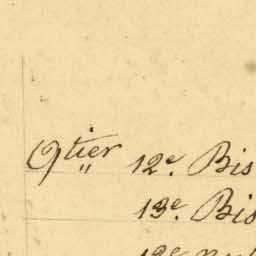 Qtier 12e. Bis
13e. Bis